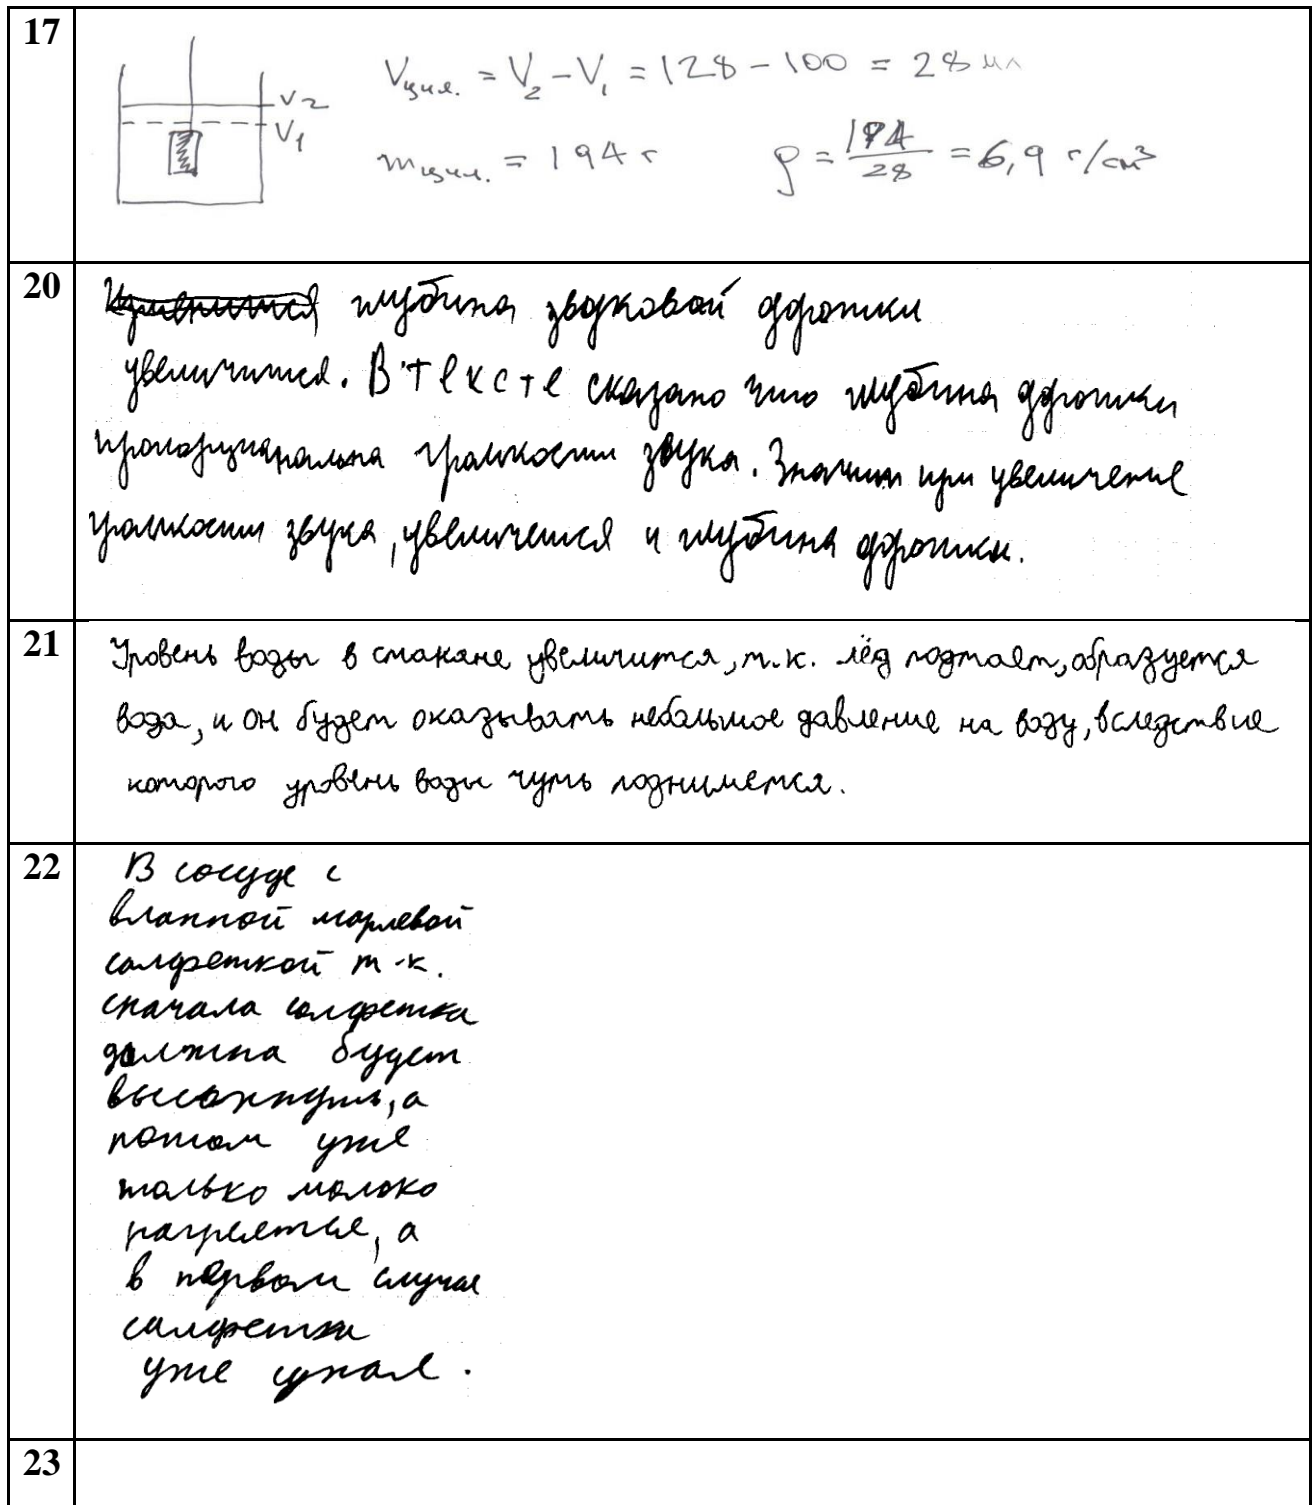 17
V₂
V₁
Vцил. = V₂ - V₁ = 128 - 100 = 28 мл
mцил. = 194 г
ρ = 194/28 = 6,9 г/см³
20
глубина звуковой дорожки
увеличится. В тексте сказано что глубина дорожки
пропорциональна громкости звука. Значит при увеличение
громкости звука, увеличется и глубина дорожки.
21
Уровень воды в стакане увеличится, т.к. лёд подтает, образуется
вода, и он будет оказывать небольшое давление на воду, вследствие
которого уровень воды чуть поднимется.
22
В сосуде с
влажной марлевой
салфеткой т.к.
сначала салфетка
должна будет
высохнуть, а
потом уже
только молоко
нагреется, а
в первом случае
салфетка
уже сухая.
23